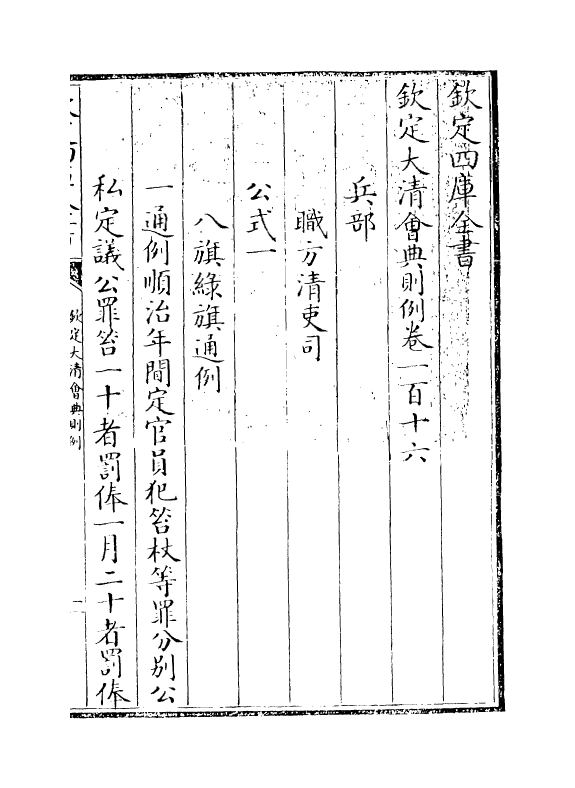 欽定四庫全書
欽定大清會典則例卷一百十六
兵部
職方清吏司
公式一
八旗綠旗通例
一通例順治年間定官員犯笞杖等罪分别公
私定議公罪笞一十者罰俸一月二十者罰俸
欽定大清會典則例